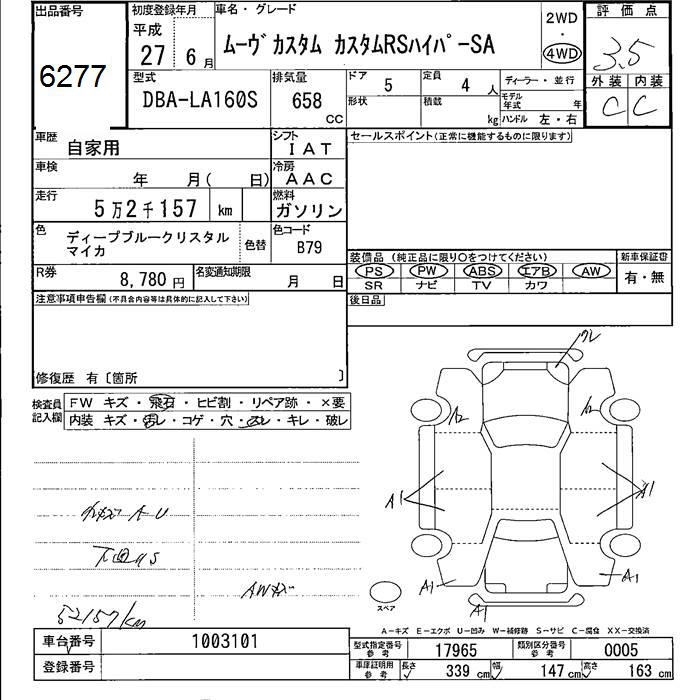 出品番号
6277
初度登録年月
平成
27 6 月
車名・グレード
ムーヴ カスタム カスタムRSハイパーSA
2WD
・
4WD
評価点
3.5
外装 内装
C C
型式
DBA-LA160S
排気量
658
CC
ドア
5
定員
4 人
ディーラー・並行
形状
積載
kg
モデル年式
年
ハンドル 左・右
車歴
自家用
シフト
IAT
車検
年 月( 日)
冷房
AAC
走行
5万2千157 km
燃料
ガソリン
色
ディープブルークリスタル
マイカ
色替
色コード
B79
R券
8,780 円
名変通知期限
月 日
セールスポイント(正常に機能するものに限ります)
装備品(純正品に限り○をつけてください)
PS PW ABS エアB AW
SR ナビ TV カワ
新車保証書
有・無
注意事項申告欄(不具合内容等は具体的に記入して下さい)
後日品
修復歴 有〔箇所 〕
検査員
記入欄
FW キズ・飛石・ヒビ割・リペア跡・×要
内装 キズ・汚レ・コゲ・穴・スレ・キレ・破レ
A・U
下回りS
AWキズ
52157km
ワレ
A2
A2
A1
A1
A1
A1
A1
スペア
A-キズ E-エクボ U-凹み W-補修跡 S-サビ C-腐食 XX-交換済
車台番号
1003101
登録番号
型式指定番号
参考
17965
類別区分番号
参考
0005
車庫証明用
参考
長さ
339 cm
幅
147 cm
高さ
163 cm